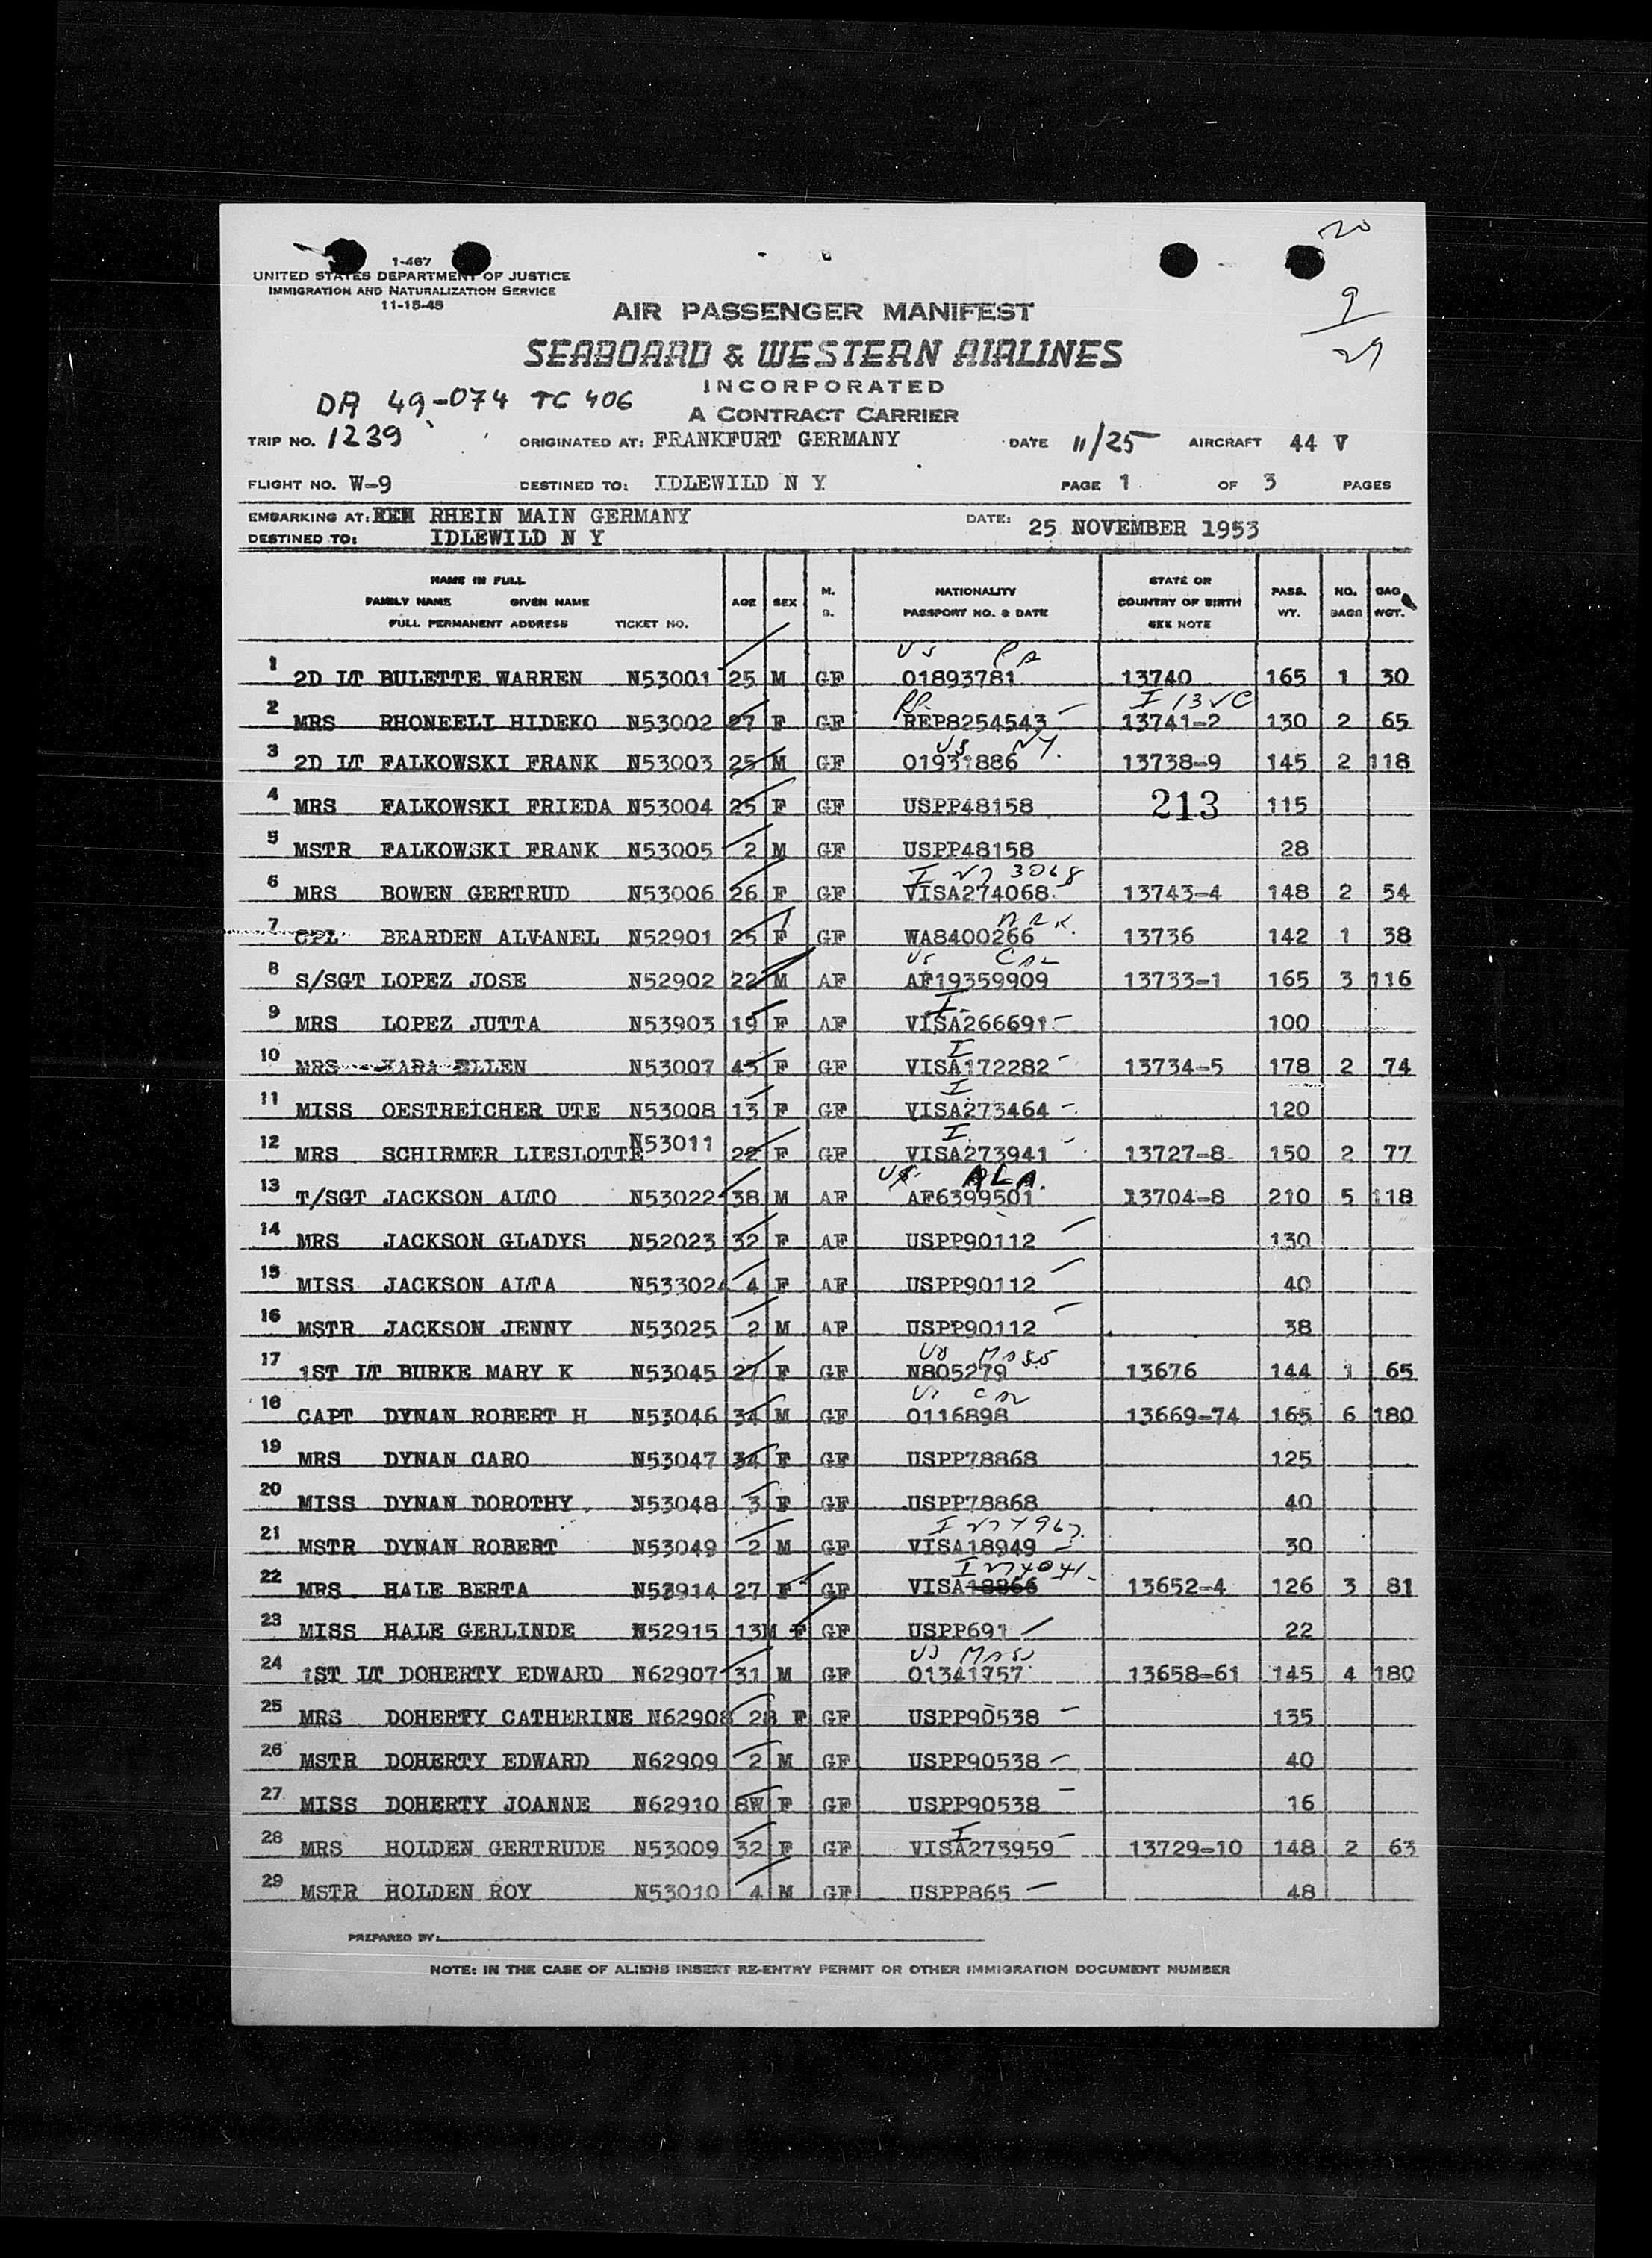 20
1-467
UNITED STATES DEPARTMENT OF JUSTICE
IMMIGRATION AND NATURALIZATION SERVICE
11-15-45
9
29
AIR PASSENGER MANIFEST
SEABOARD & WESTERN AIRLINES
INCORPORATED
DA 49-074 TC 406
A CONTRACT CARRIER
TRIP NO. 1239 ORIGINATED AT: FRANKFURT GERMANY DATE 11/25 AIRCRAFT 44 V
FLIGHT NO. W-9 DESTINED TO: IDLEWILD N Y PAGE 1 OF 3 PAGES
EMBARKING AT: RHEIN MAIN GERMANY DATE: 25 NOVEMBER 1953
DESTINED TO: IDLEWILD N Y
NAME IN FULL
FAMILY NAME GIVEN NAME
FULL PERMANENT ADDRESS TICKET NO.
AGE SEX M. S.
NATIONALITY
PASSPORT NO. & DATE
STATE OR
COUNTRY OF BIRTH
SEE NOTE
PASS. WT. NO. BAGS BAG WGT.
US PA
1 2D LT BULETTE WARREN N53001 25 M GF O1893781 13740 165 1 30
2 MRS RHONEELI HIDEKO N53002 27 F GF REP8254543 13741-2 130 2 65
US NY.
3 2D LT FALKOWSKI FRANK N53003 25 M GF O1931886 13738-9 145 2 118
4 MRS FALKOWSKI FRIEDA N53004 25 F GF USPP48158 213 115
5 MSTR FALKOWSKI FRANK N53005 2 M GF USPP48158 28
6 MRS BOWEN GERTRUD N53006 26 F GF VISA274068 13743-4 148 2 54
ARK.
7 CPL BEARDEN ALVANEL N52901 25 F GF WA8400266 13736 142 1 38
US CAL
8 S/SGT LOPEZ JOSE N52902 22 M AF AF19359909 13733-1 165 3 116
I
9 MRS LOPEZ JUTTA N53903 19 F AF VISA266691 100
I
10 MRS ELLEN N53007 43 F GF VISA172282 13734-5 178 2 74
I
11 MISS OESTREICHER UTE N53008 13 F GF VISA273464 120
I
12 MRS SCHIRMER LIESLOTTE N53011 22 F GF VISA273941 13727-8 150 2 77
US ALA.
13 T/SGT JACKSON ALTO N53022 38 M AF AF6399501 13704-8 210 5 118
14 MRS JACKSON GLADYS N52023 32 F AF USPP90112 130
15 MISS JACKSON ALTA N533024 4 F AF USPP90112 40
16 MSTR JACKSON JENNY N53025 2 M AF USPP90112 38
US MASS
17 1ST LT BURKE MARY K N53045 27 F GF N805279 13676 144 1 65
US CAL
18 CAPT DYNAN ROBERT H N53046 34 M GF O116898 13669-74 165 6 180
19 MRS DYNAN CARO N53047 34 F GF USPP78868 125
20 MISS DYNAN DOROTHY N53048 3 F GF USPP78868 40
21 MSTR DYNAN ROBERT N53049 2 M GF VISA18949 30
22 MRS HALE BERTA N52914 27 F GF VISA18866 13652-4 126 3 81
23 MISS HALE GERLINDE N52915 13M F GF USPP691 22
US MASS
24 1ST LT DOHERTY EDWARD N62907 31 M GF O1341757 13658-61 145 4 180
25 MRS DOHERTY CATHERINE N62908 28 F GF USPP90538 135
26 MSTR DOHERTY EDWARD N62909 2 M GF USPP90538 40
27 MISS DOHERTY JOANNE N62910 8W F GF USPP90538 16
I
28 MRS HOLDEN GERTRUDE N53009 32 F GF VISA273959 13729-10 148 2 63
29 MSTR HOLDEN ROY N53010 4 M GF USPP865 48
PREPARED BY:
NOTE: IN THE CASE OF ALIENS INSERT RE-ENTRY PERMIT OR OTHER IMMIGRATION DOCUMENT NUMBER